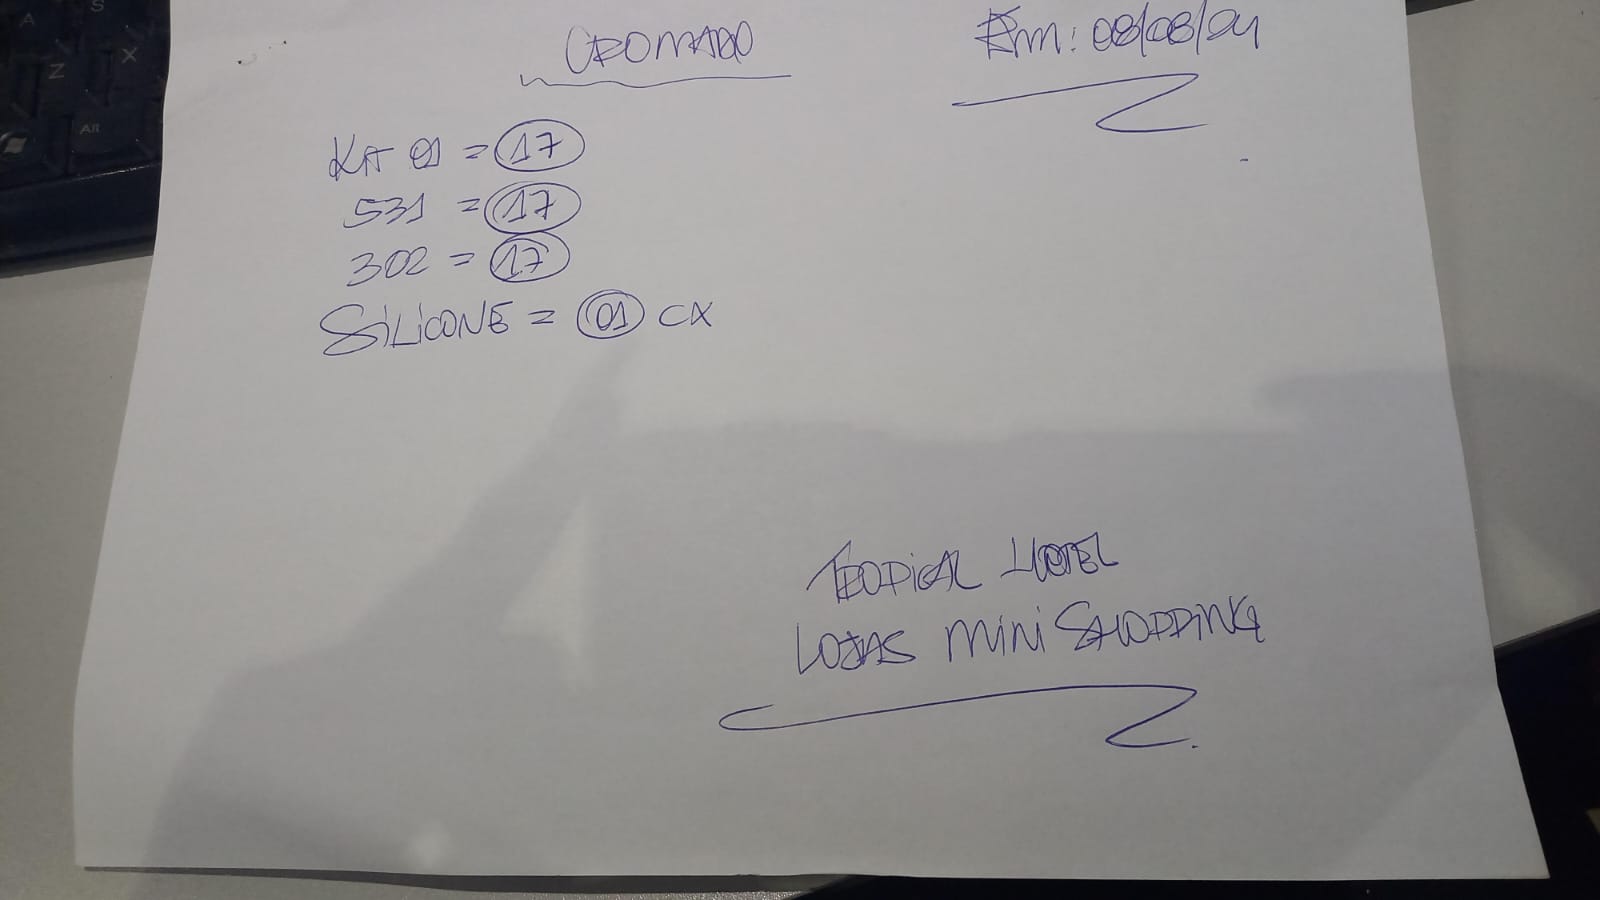 CROMADO
Em: 08/08/24
Kit 01 = 17
531 = 17
302 = 17
SiLiCONE = 01 CX
TROPiCAL HOTEL
LOJAS MiNi SHOPPiNG
A
S
Z
X
Alt